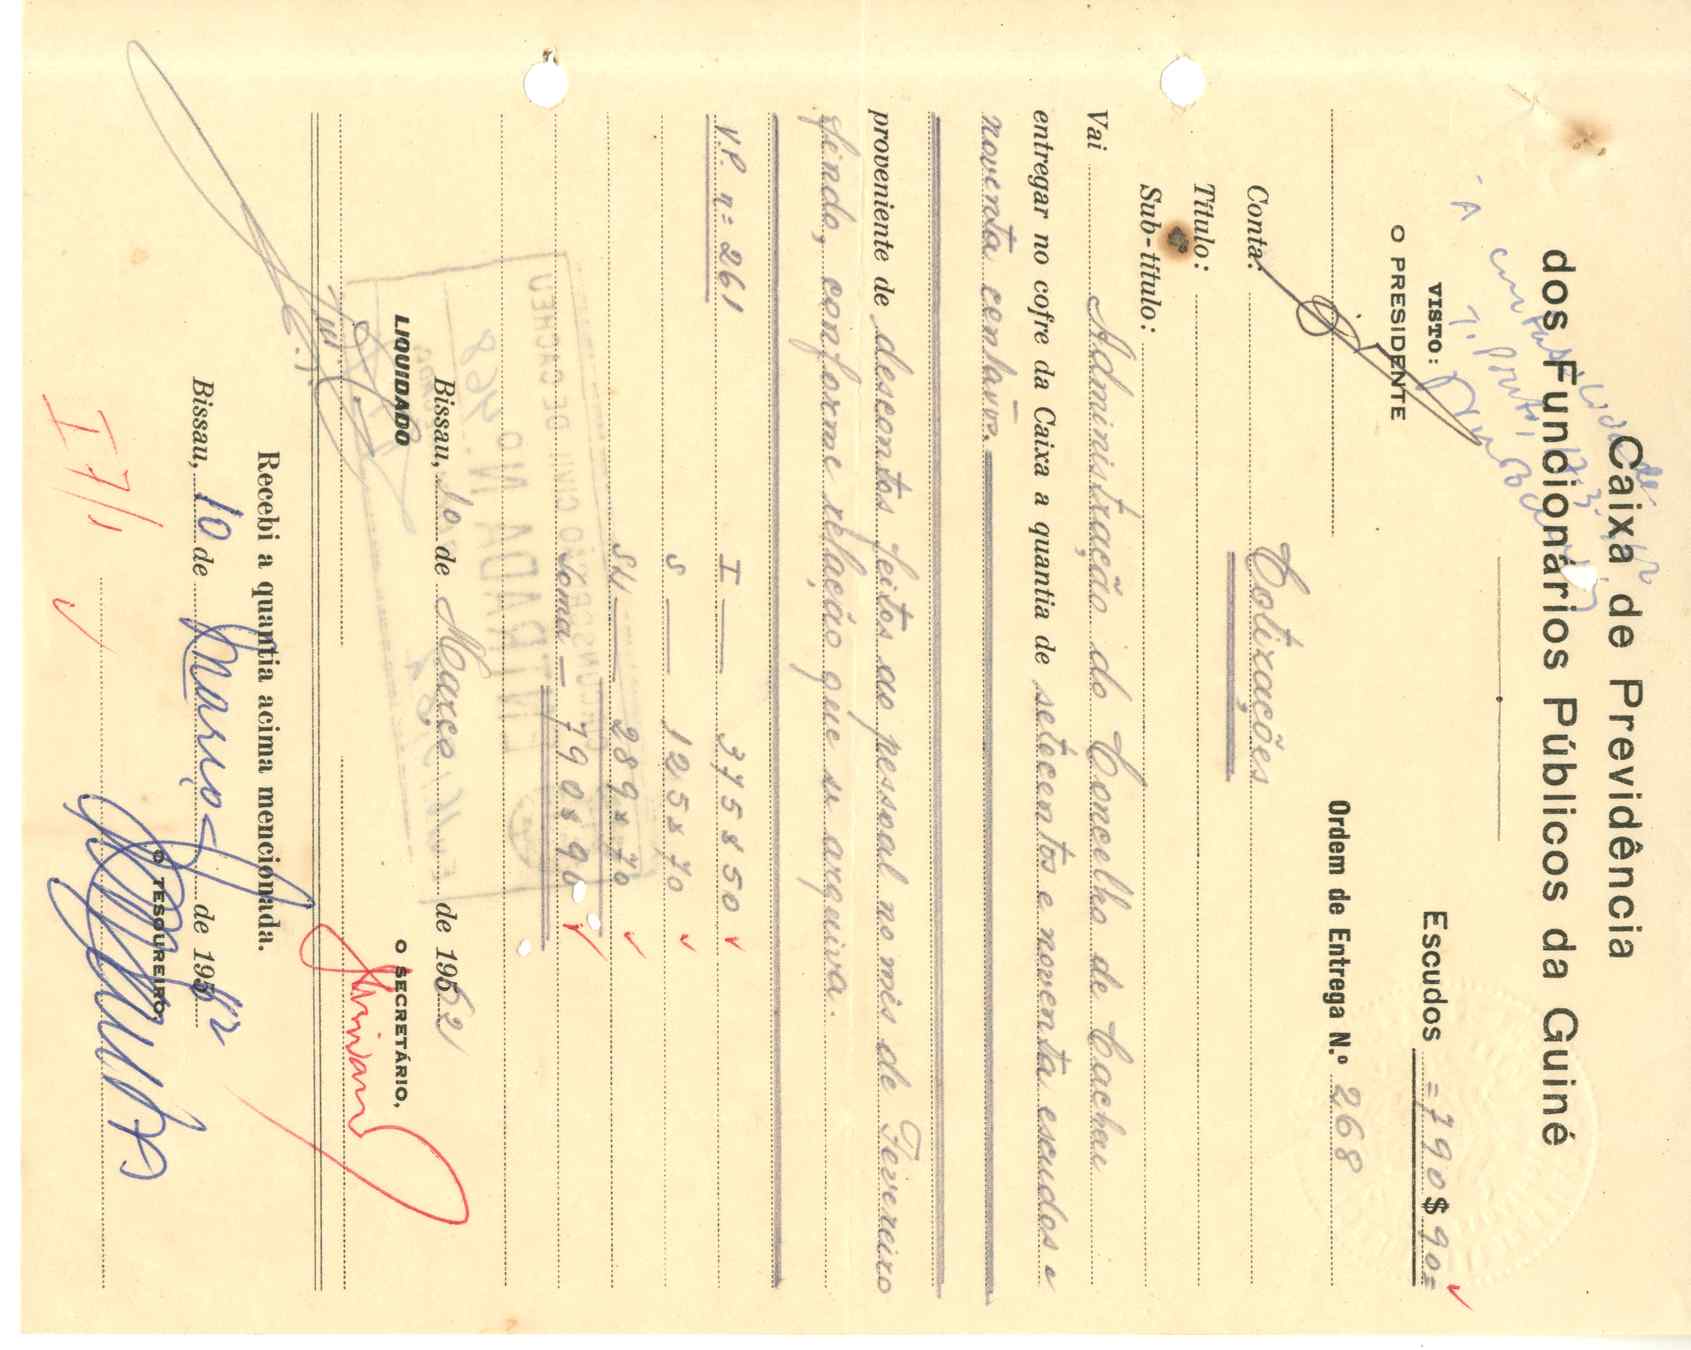 Caixa de Previdência
dos Funcionários Públicos da Guiné
VISTO:
O PRESIDENTE
Escudos =790$90=
Ordem de Entrega N.º 268
Conta: Cotizações
Título:
Sub-título:
Vai Administração do Concelho de Cacheu
entregar no cofre da Caixa a quantia de setecentos e noventa escudos e
noventa centavos.
proveniente de descontos feitos ao pessoal no mês de Fevereiro
findo, conforme relação que se arquiva.
V.P. nº 261 I — 375$50
S — 125$70
SU — 289$70
Soma — 790$90
Bissau, 10 de Março de 1962
LIQUIDADO
O SECRETÁRIO,
Recebi a quantia acima mencionada.
Bissau, 10 de março de 1962
O TESOUREIRO,
I 7/1